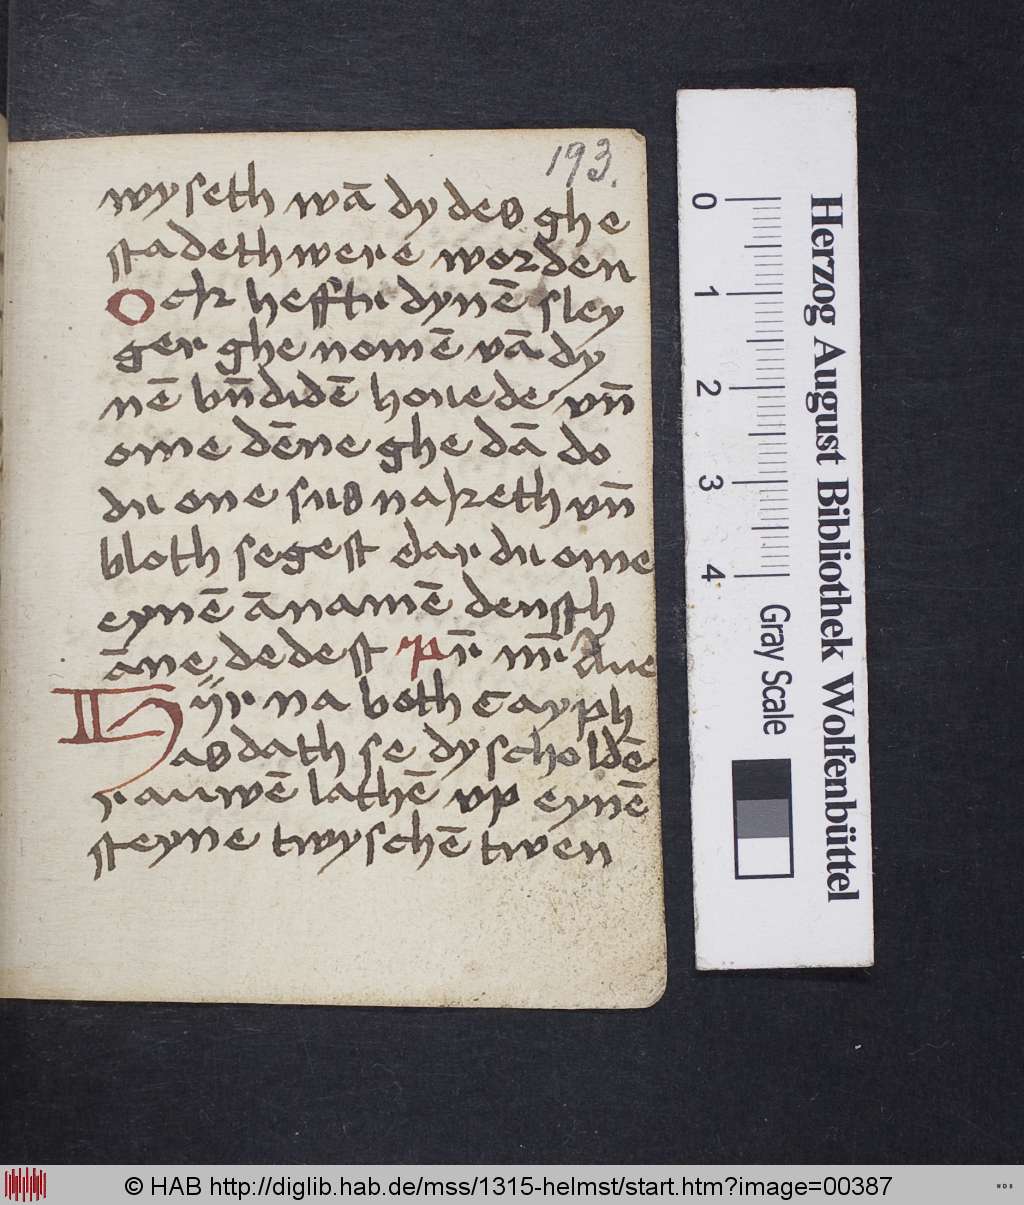 193.
wyseth wā dy des ghe
stadeth were worden
Ock hefftu dynē sley
ger ghe nomē vā dy
nē vn̄ didē houede vn̄
ome dēne ghe dā do
du one sus naket vn̄
bloth segest dar du ome
eynē ānamē densth
āne dedest pr̄ nr̄ Aue
Hÿr na both cayph
as dath se dy scholdē
rauwē lathē vp eynē
steyne twyschē twen
Herzog August Bibliothek Wolfenbüttel
0 1 2 3 4
Gray Scale
© HAB http://diglib.hab.de/mss/1315-helmst/start.htm?image=00387